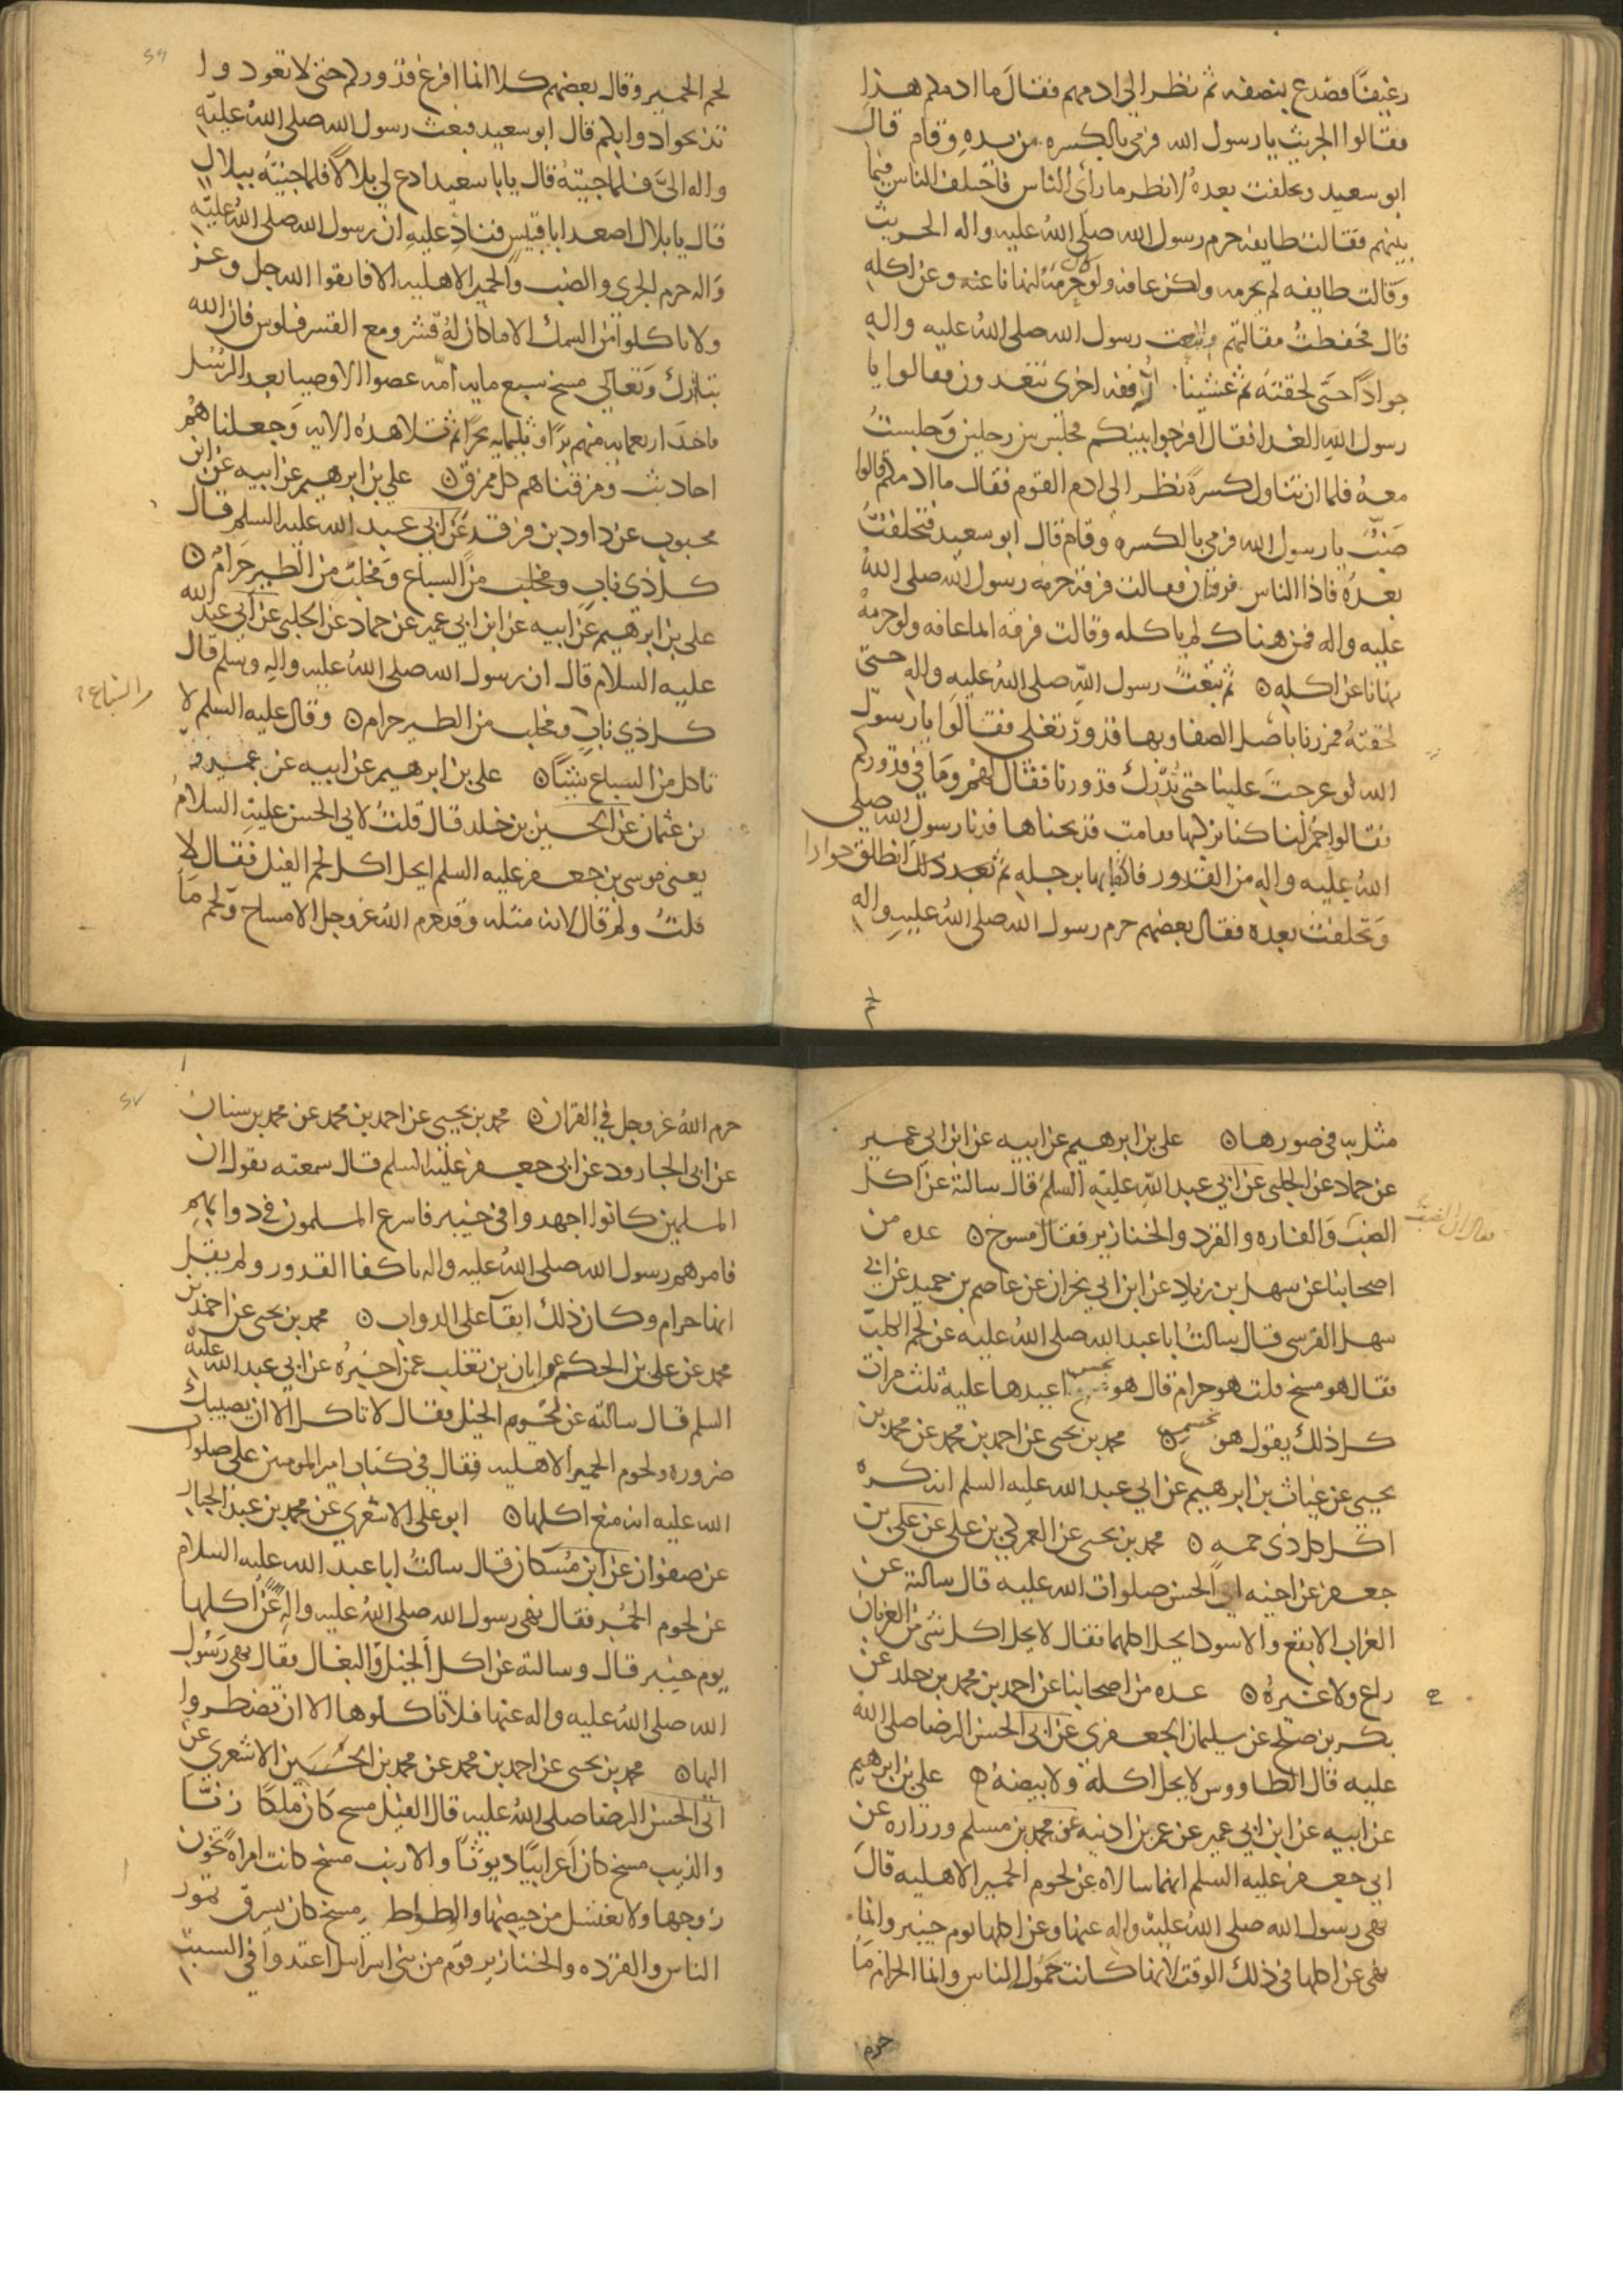 رغيفًا فصدع بنصفه ثم نظر الى ادمهم فقال ما ادمكم هذا
فقالوا الجريث يا رسول الله فرمى بالكسره من يده وقام قال
ابو سعيد وتخلفت بعده لانظر ما رأى الناس فاختلف الناس فيما
بينهم فقالت طايفه حرم رسول الله صلى الله عليه واله الجريث
وقالت طايفه لم يحرمه ولكن عافه ولو كان حرمه لنهانا عنه وعن اكله
قال فحفظت مقالتهم وتبعت رسول الله صلى الله عليه واله
جوادًا حتى لحقته ثم غشينا رفقه اخرى يتغدون فقالوا يا
رسول الله الغدا فقال افرجوا بينكم فجلس بين رجلين وجلست
معه فلما ان تناول كسرة نظر الى ادم القوم فقال ما ادمكم قالوا
ضب يا رسول الله فرمى بالكسره وقام قال ابو سعيد فتخلفت
بعده فاذا الناس فرقتان فقالت فرقة حرمه رسول الله صلى الله
عليه واله فمن هناك لم ياكله وقالت فرقه انما عافه ولو حرمه
نهانا عن اكله ثم تبعت رسول الله صلى الله عليه واله حتى
لحقته فمررنا باصل الصفا وبها قدور تغلى فقالوا يا رسول
الله لو عرجت علينا حتى تدرك قدورنا فقال لهم وما في قدوركم
فقالوا حمر لنا كنا نركبها فقامت فذبحناها فدنا رسول الله صلى
الله عليه واله من القدور فاكفاها برجله ثم بعد ذلك انطلق جوادا
وتخلفت بعده فقال بعضهم حرم رسول الله صلى الله عليه واله
لحم
لحم الحمير وقال بعضهم كلا انما افرغ قدوركم حتى لا تعودوا
تذبحوا دوابكم قال ابو سعيد فبعث رسول الله صلى الله عليه
واله الى فلما جيته قال يابا سعيد ادع لي بلالا فلما جيته ببلال
قال يا بلال اصعد ابا قبيس فناد عليه ان رسول الله صلى الله عليه
واله حرم الجرى والضب والحمير الاهليه الا فاتقوا الله جل وعز
ولا تاكلوا من السمك الا ما كان له قشر ومع القشر فلوس فان الله
تبارك وتعالى مسخ سبع مايه امه عصوا الاوصيا بعد الرسل
فاخذ اربعمايه منهم برا وثلثمايه بحرا ثم تلا هذه الايه وجعلناهم
احاديث ومزقناهم كل ممزق علي بن ابرهيم عن ابيه عن ابن
محبوب عن داود بن فرقد عن ابي عبد الله عليه السلم قال
كل ذي ناب ومخلب من السباع ومخلب من الطير حرام
على بن ابرهيم عن ابيه عن ابن ابي عمير عن حماد عن الحلبي عن ابي عبد الله
عليه السلام قال ان رسول الله صلى الله عليه واله وسلم قال
من السباع
كل ذي ناب ومخلب من الطير حرام وقال عليه السلم لا
تاكل من السباع شيئًا علي بن ابرهيم عن ابيه عن عمرو
بن عثمان عن الحسين بن خلد قال قلت لابي الحسن عليه السلام
يعني موسى بن جعفر عليه السلم ايحل اكل لحم الفيل فقال لا
قلت ولم قال لانه مثله وقد حرم الله عز وجل الامساخ ولحم ما
مثل به في صورها علي بن ابرهيم عن ابيه عن ابن ابي عمير
عن حماد عن الحلبي عن ابي عبد الله عليه السلم قال سالته عن اكل
الضب والفاره والقرد والخنازير فقال مسوخ عده من
اصحابنا عن سهل بن زياد عن ابن ابي نجران عن عاصم بن حميد عن ابي
سهل القرسى قال سالت ابا عبد الله صلى الله عليه عن لحم الكلب
فقال هو مسخ قلت هو حرام قال هو نجس اعيدها عليه ثلث مرات
كل ذلك يقول هو نجس محمد بن يحيى عن احمد بن محمد عن محمد بن
يحيى عن غياث بن ابرهيم عن ابي عبد الله عليه السلم انه كره
اكل كل ذي حمه محمد بن يحيى عن العمركي بن علي عن علي بن
جعفر عن اخيه ابي الحسن صلوات الله عليه قال سالته عن
الغراب الابقع والاسود ايحل اكلهما فقال لا يحل اكل شي من الغربان
زاغ ولا غيره عده من اصحابنا عن احمد بن محمد بن خلد عن
بكر بن صلح عن سليمان الجعفري عن ابي الحسن الرضا صلى الله
عليه قال الطاووس لا يحل اكله ولا بيضه علي بن ابرهيم
عن ابيه عن ابن ابي عمير عن عمر بن اذنيه عن محمد بن مسلم وزراره عن
ابي جعفر عليه السلم انهما سالاه عن لحوم الحمير الاهليه قال
نهى رسول الله صلى الله عليه واله عنها وعن اكلها يوم خيبر وانما
نهى عن اكلها في ذلك الوقت لانها كانت حمول الناس وانما الحرام ما
حرم
حرم الله عز وجل في القران محمد بن يحيى عن احمد بن محمد عن محمد بن سنان
عن ابي الجارود عن ابي جعفر عليه السلم قال سمعته يقول ان
المسلمين كانوا اجهدوا في خيبر فاسرع المسلمون في دوابهم
فامرهم رسول الله صلى الله عليه واله باكفا القدور ولم يقل
انها حرام وكان ذلك ابقا على الدواب محمد بن يحيى عن احمد بن
محمد عن علي بن الحكم عن ابان بن تغلب عمن اخبره عن ابي عبد الله عليه
السلم قال سالته عن لحوم الخيل فقال لا تاكل الا ان يصيبك
ضروره ولحوم الحمير الاهليه فقال في كتاب امير المومنين علي صلوات
الله عليه انه منع اكلها ابو علي الاشعري عن محمد بن عبد الجبار
عن صفوان عن ابن مسكان قال سالت ابا عبد الله عليه السلام
عن لحوم الحمير فقال نهى رسول الله صلى الله عليه واله عن اكلها
يوم خيبر قال وسالته عن اكل الخيل والبغال فقال نهى رسول
الله صلى الله عليه واله عنها فلا تاكلوها الا ان تضطروا
اليها محمد بن يحيى عن احمد بن محمد عن محمد بن الحسين الاشعري عن
ابي الحسن الرضا صلى الله عليه قال الفيل مسخ كان ملكًا زنّا
والذيب مسخ كان اعرابيًا ديوثًا والارنب مسخ كانت امراة تخون
زوجها ولا تغتسل من حيضها والوطواط مسخ كان يسرق تمور
الناس والقرده والخنازير قوم من بني اسراييل اعتدوا في السبت